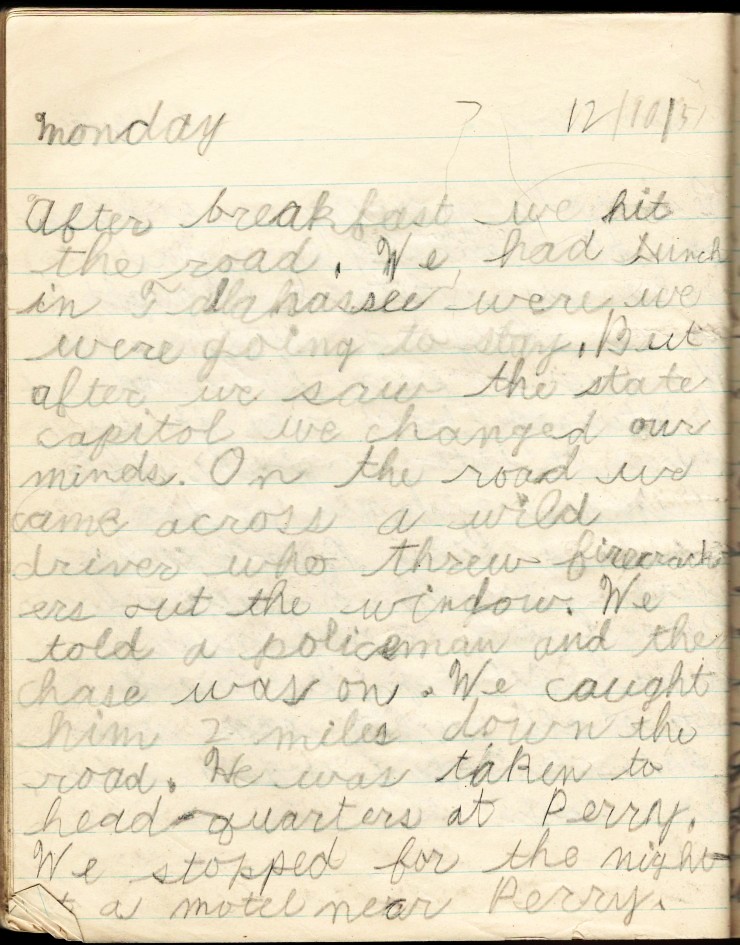 Monday 12/10/51
After breakfast we hit
the road. We had lunch
in Tallahassee were we
were going to stay. But
after we saw the state
capitol we changed our
minds. On the road we
came across a wild
driver who threw firecrack
ers out the window. We
told a policeman and the
chase was on. We caught
him 2 miles down the
road. He was taken to
head-quarters at Perry.
We stopped for the night
at a motel near Perry.